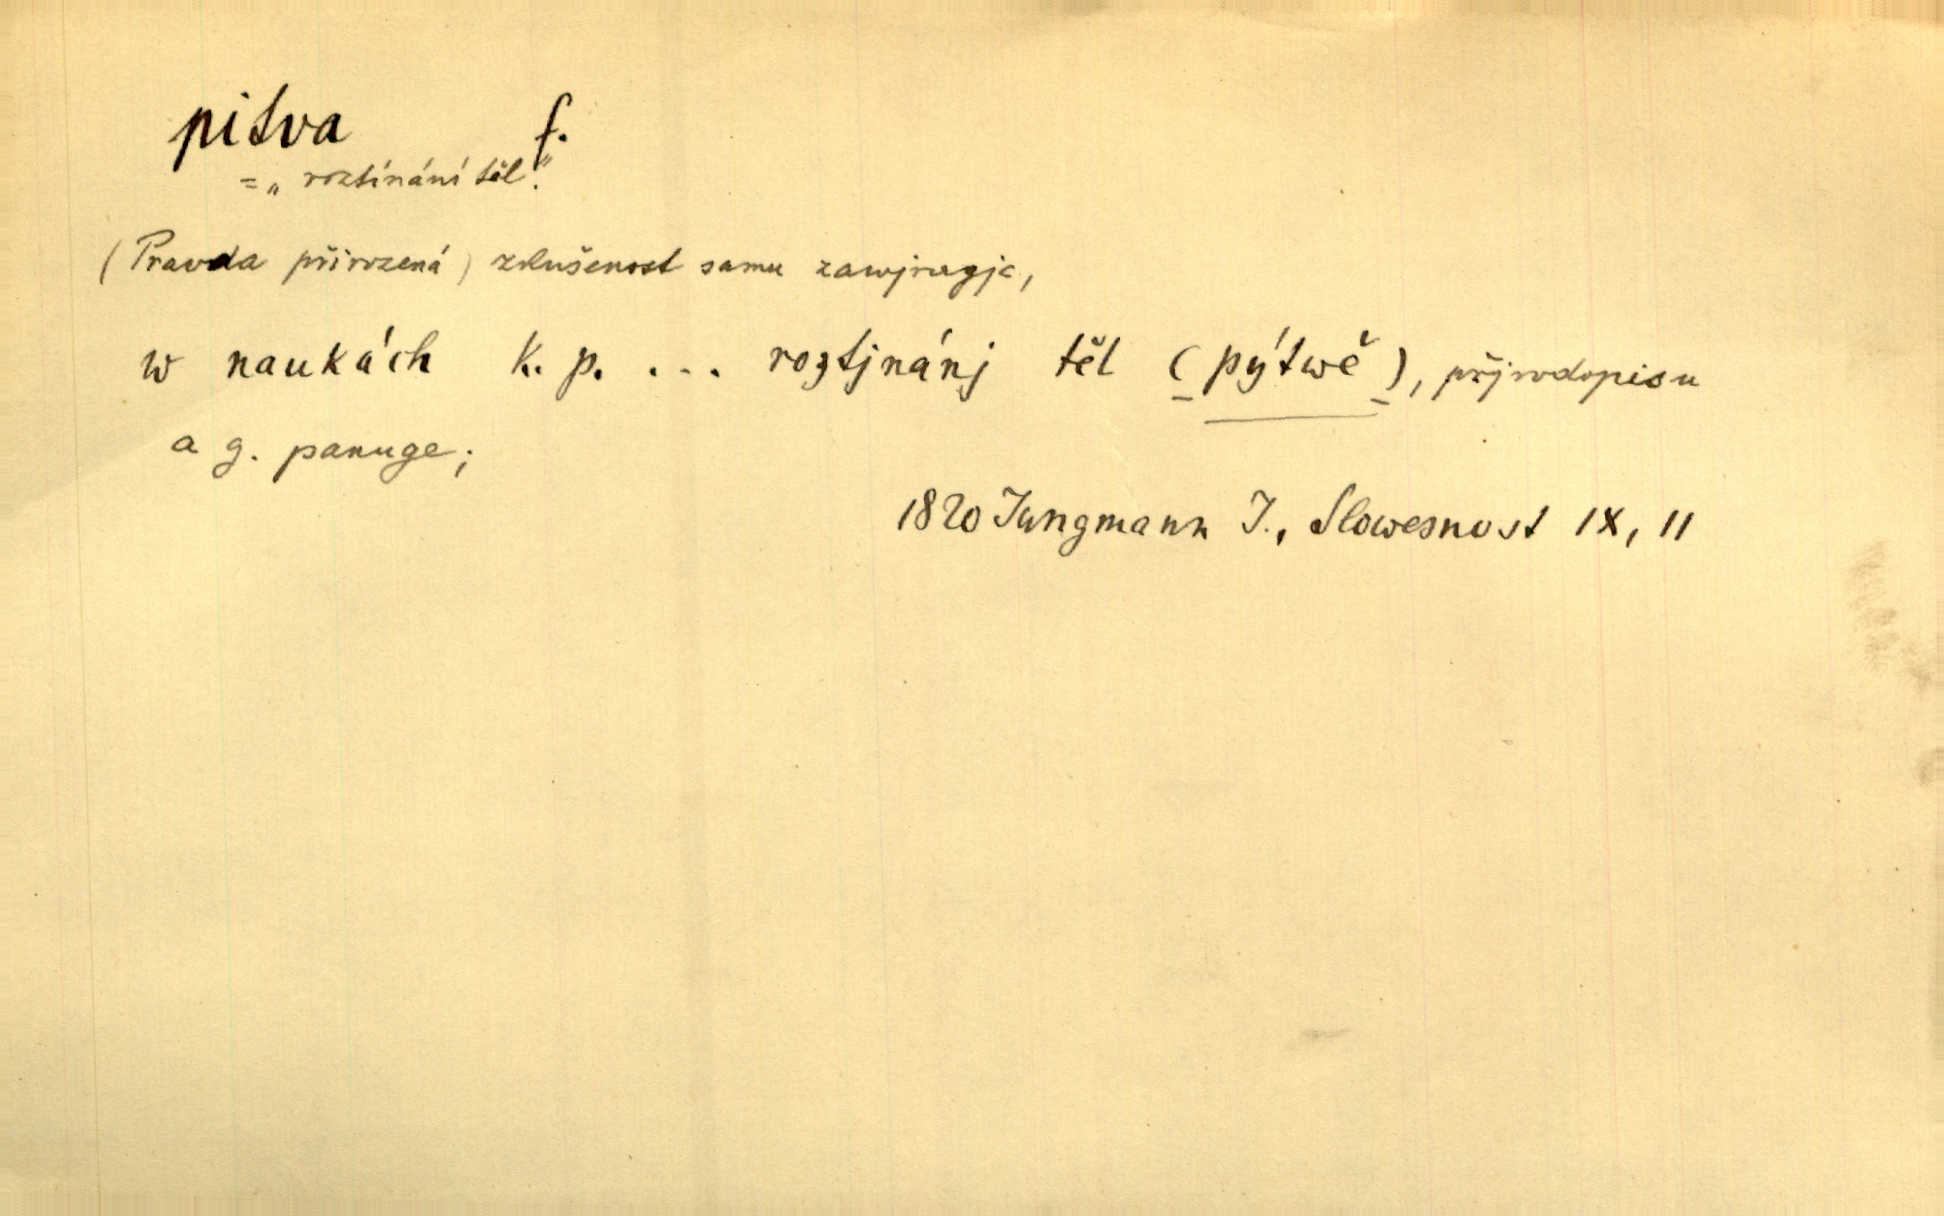 pitva f.
= „roztínání těl."
(Pravda přirozená) zkušenost samu zawjragjc,
w naukách k. p. ... roztjnánj těl (pýtwě), přjrodopisu
a g. panuge;
1820 Jungmann J., Slowesnost IX, 11